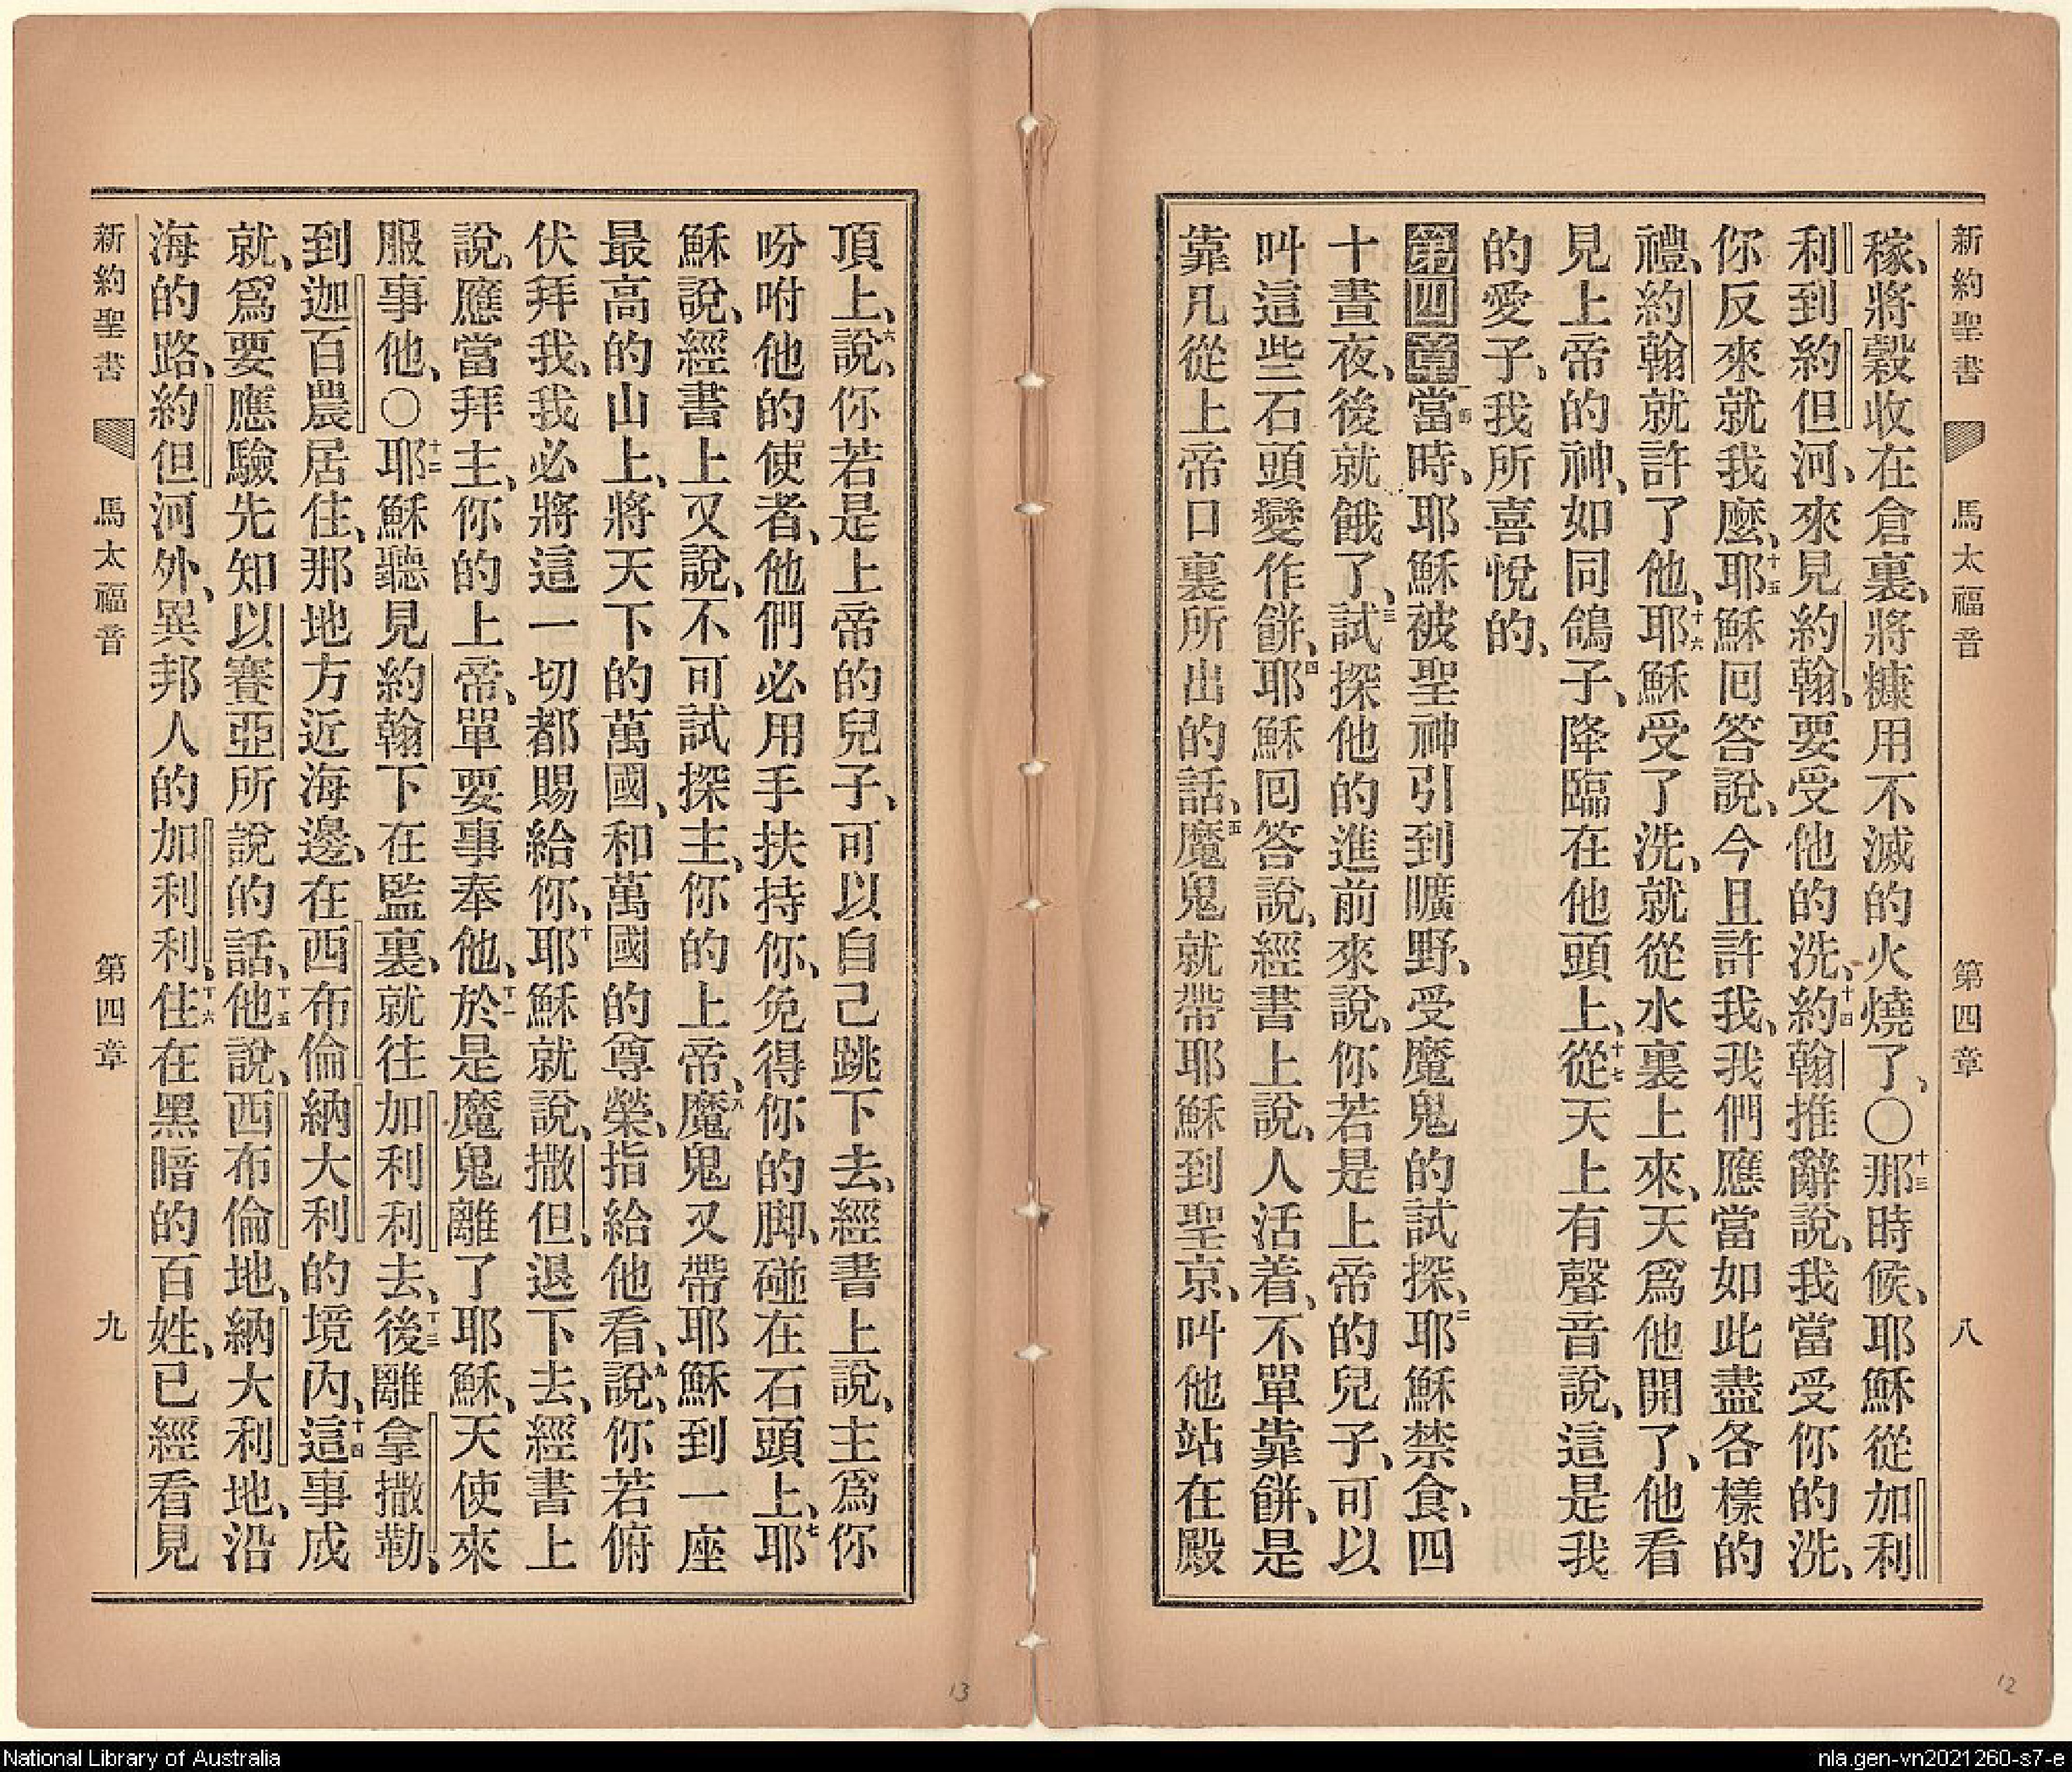 新約聖書 馬太福音 第四章 八
稼、將穀收在倉裏、將糠用不滅的火燒了、〇十三那時候、耶穌從加利
利到約但河、來見約翰、要受他的洗、十四約翰推辭說、我當受你的洗、
你反來就我麼、十五耶穌囘答說、今且許我、我們應當如此盡各樣的
禮、約翰就許了他、十六耶穌受了洗、就從水裏上來、天爲他開了、他看
見上帝的神、如同鴿子、降臨在他頭上、十七從天上有聲音說、這是我
的愛子、我所喜悅的、
第四章一當時、耶穌被聖神引到曠野、受魔鬼的試探、二耶穌禁食、四
十晝夜、後就餓了、三試探他的進前來說、你若是上帝的兒子、可以
叫這些石頭變作餅、四耶穌囘答說、經書上說、人活着、不單靠餅、是
靠凡從上帝口裏所出的話、五魔鬼就帶耶穌到聖京、叫他站在殿
頂上、六說、你若是上帝的兒子、可以自己跳下去、經書上說、主爲你
吩咐他的使者、他們必用手扶持你、免得你的脚、碰在石頭上、七耶
穌說、經書上又說、不可試探主、你的上帝、八魔鬼又帶耶穌到一座
最高的山上、將天下的萬國、和萬國的尊榮、指給他看、九說、你若俯
伏拜我、我必將這一切都賜給你、十耶穌就說、撒但、退下去、經書上
說、應當拜主、你的上帝、單要事奉他、十一於是魔鬼離了耶穌、天使來
服事他、〇十二耶穌聽見約翰下在監裏、就往加利利去、十三後離拿撒勒、
到迦百農居住、那地方近海邊、在西布倫納大利的境內、十四這事成
就、爲要應驗先知以賽亞所說的話、十五他說、西布倫地、納大利地、沿
海的路、約但河外、異邦人的加利利、十六住在黑暗的百姓、已經看見
新約聖書 馬太福音 第四章 九
13
12
National Library of Australia
nla.gen-vn2021260-s7-e